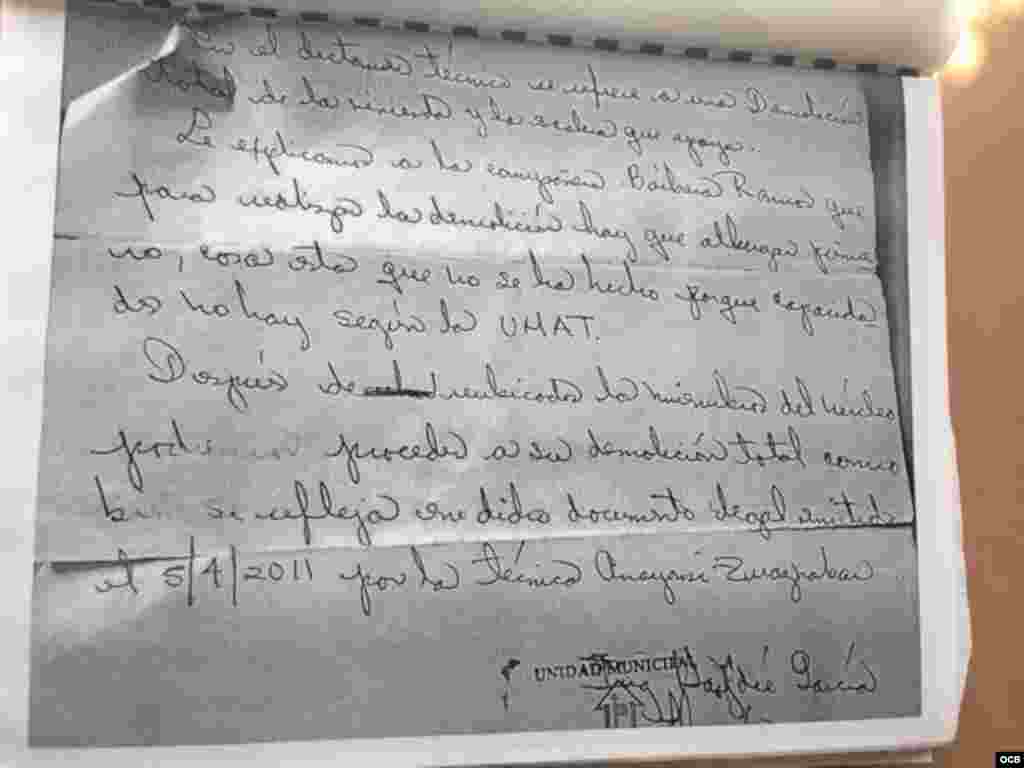 En el dictamen técnico se refiere a una Demolición
total de la vivienda y la escalera que apoya.
Le explicamos a la compañera Bárbara Ramos que
para realizar la demolición hay que albergar prime
ro, cosa esta que no se ha hecho porque capacida
des no hay según la UMAT.
Después de reubicados los miembros del núcleo
proceder a su demolición total como
bien se refleja en dicho documento legal emitido
el 5/4/2011 por la técnica
UNIDAD MUNICIPAL
García
OCB